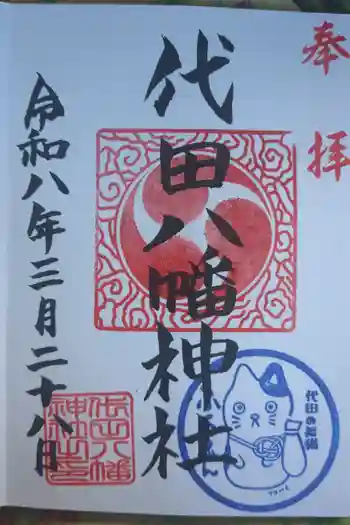 奉拝
代田八幡神社
令和八年三月二十八日
代田八幡
神社之
代田の